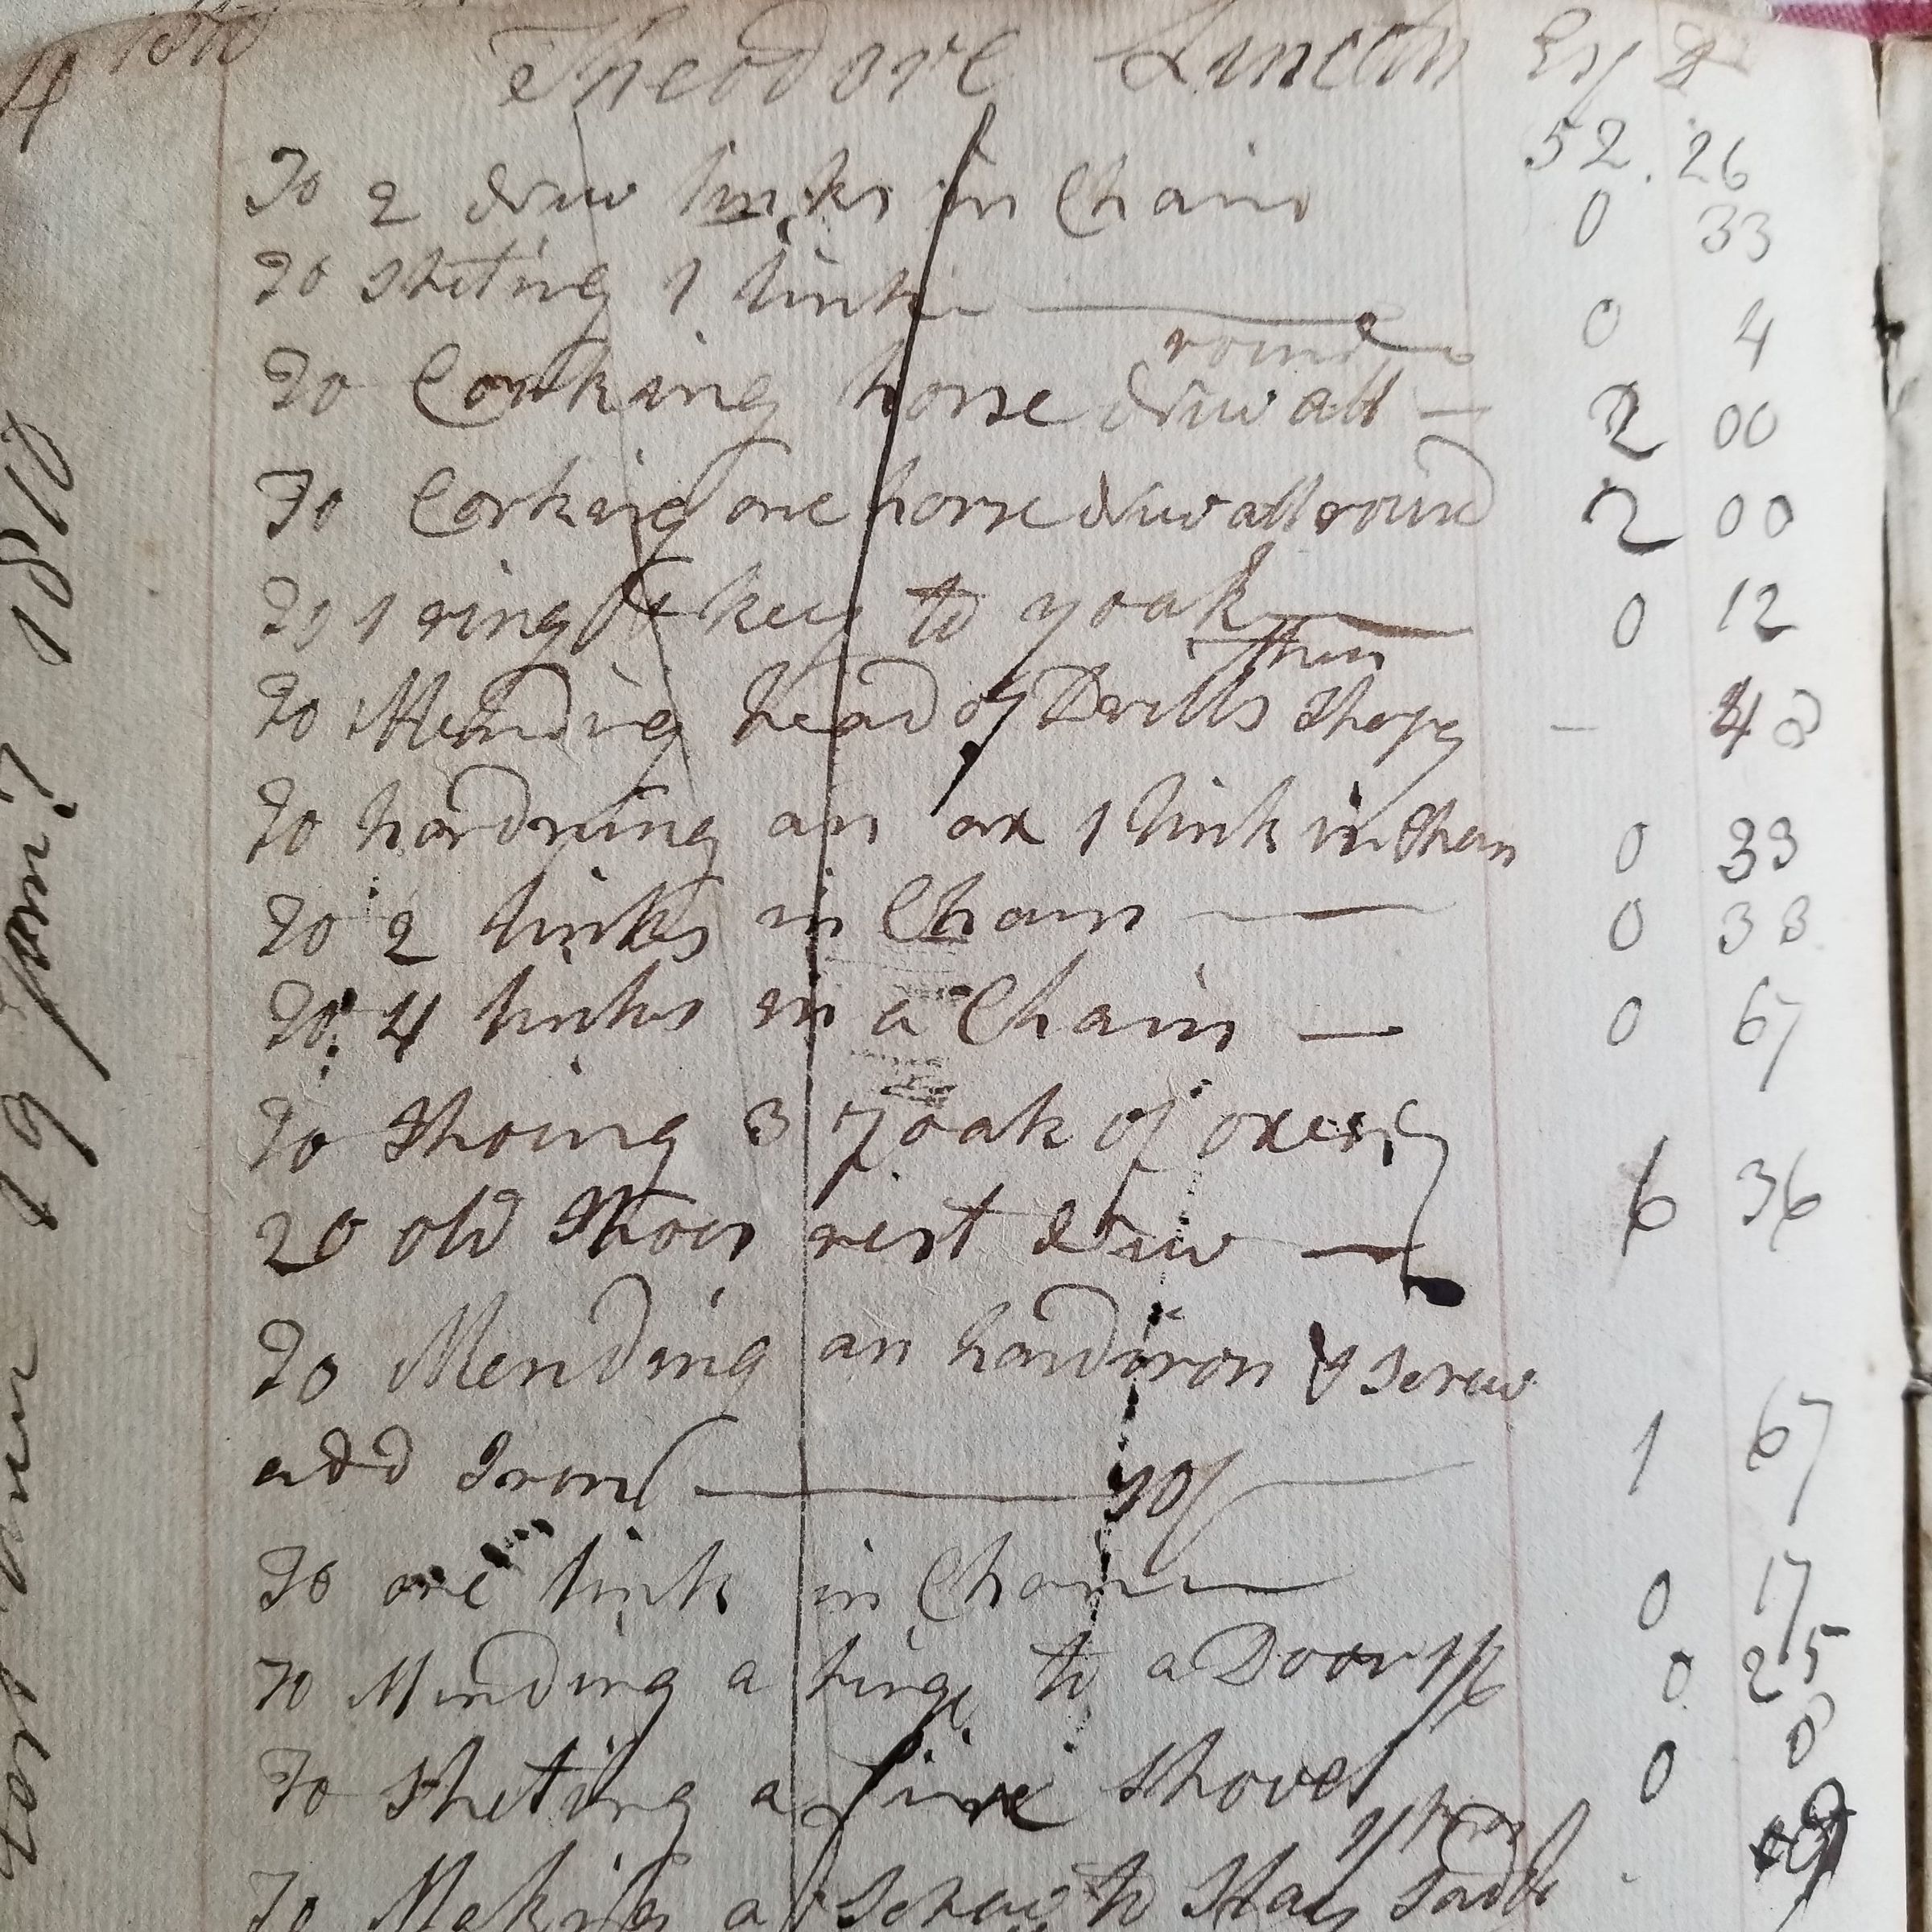 4 1810
Theodore Lincoln Esq Dr
52.26
To 2 New links in Chain 0 33
To Sheting 1 link 0 4
round
To Corking horse New all 2 00
To Corking one horse New all round 2 00
To 1 ring & key to yoak 0 12
To Mending head of Drills Sharpg - 42
To hardning an ax 1 link in Chain 0 33
To 2 links in Chain 0 33
To 4 links in a Chain 0 67
To Shoing 3 Yoak of oxen
20 old Shoes rest New 6 36
To Mending an handiron & Screw
add Iron 10/ 1 67
To one link in Chain 0 17
To Minding a hinge to a Door 1/6 0 25
To Sheting a fire Shovel 0 8
To Making a Screw to Stay
19 1810